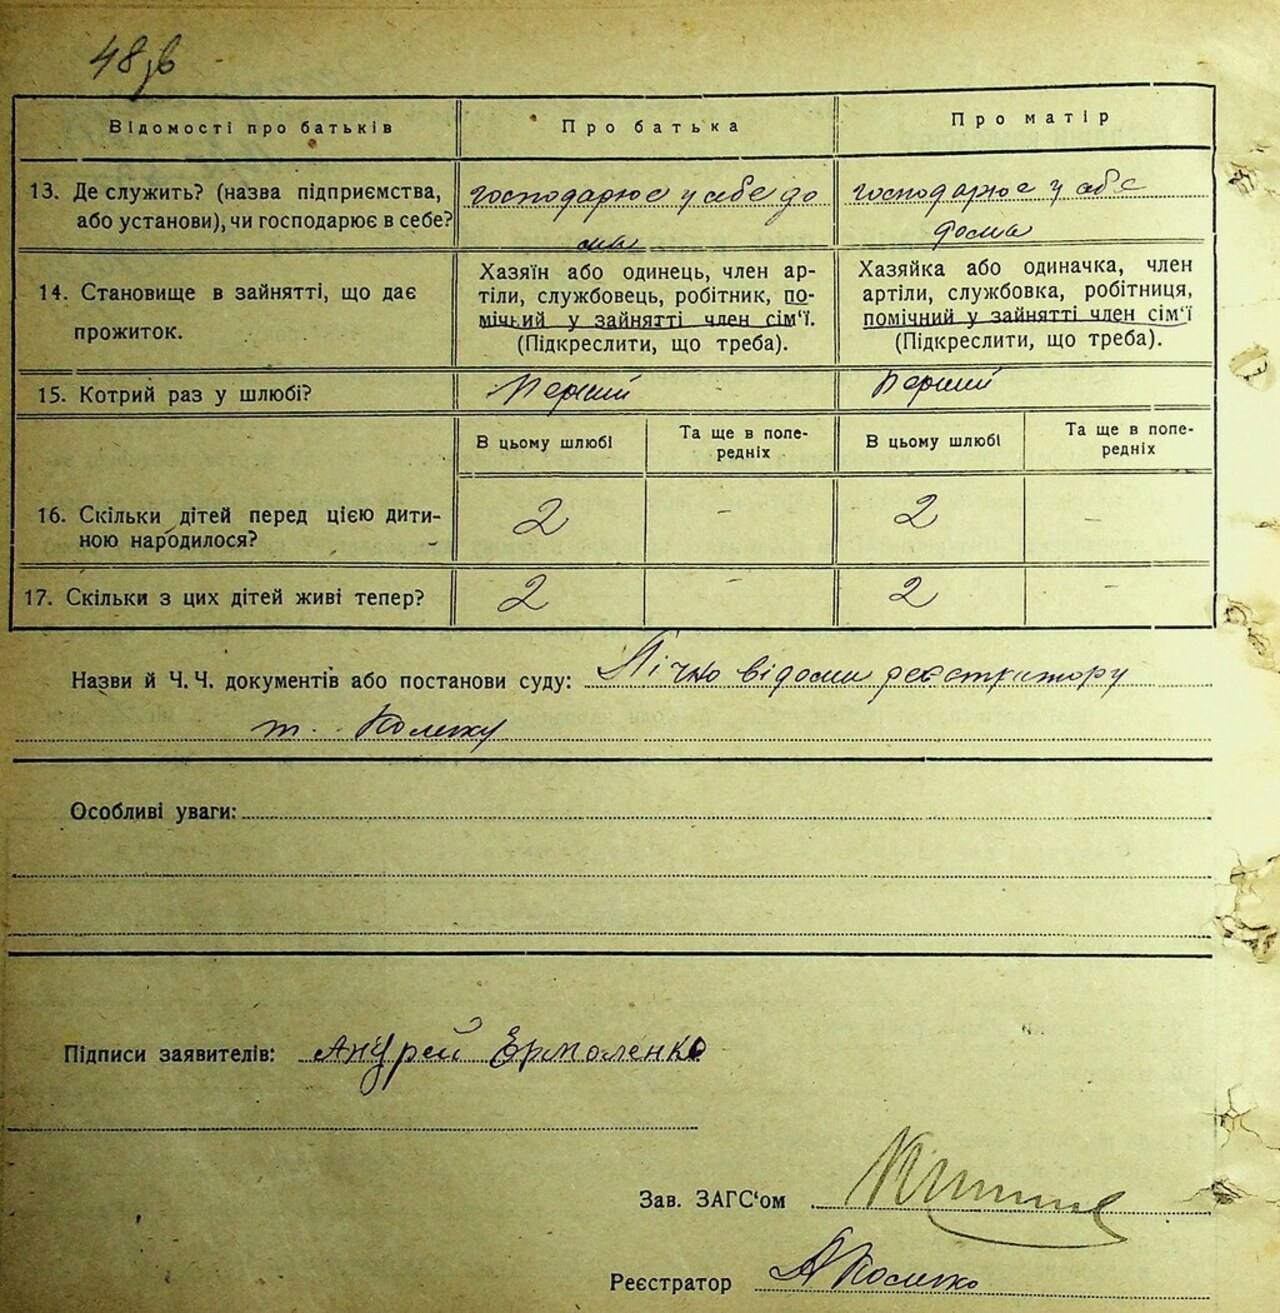 48 зв
Відомості про батьків
Про батька
Про матір
13. Де служить? (назва підприємства,
або установи), чи господарює в себе?
господарює у себе до
ма
господарює у себе
дома
14. Становище в зайнятті, що дає
прожиток.
Хазяїн або одинець, член ар-
тіли, службовець, робітник, по-
мічьий у зайнятті член сім'ї.
(Підкреслити, що треба).
Хазяйка або одиначка, член
артіли, службовка, робітниця,
помічний у зайнятті член сім'ї
(Підкреслити, що треба).
15. Котрий раз у шлюбі?
Перший
Перший
В цьому шлюбі
Та ще в попе-
редніх
В цьому шлюбі
Та ще в попе-
редніх
16. Скільки дітей перед цією дити-
ною народилося?
2
-
2
-
17. Скільки з цих дітей живі тепер?
2
-
2
-
Назви й Ч. Ч. документів або постанови суду: Лічно відоми реєстратору
т.
Особливі уваги:
Підписи заявителів: Андрей Ермоленко
Зав. ЗАГС'ом
Реєстратор